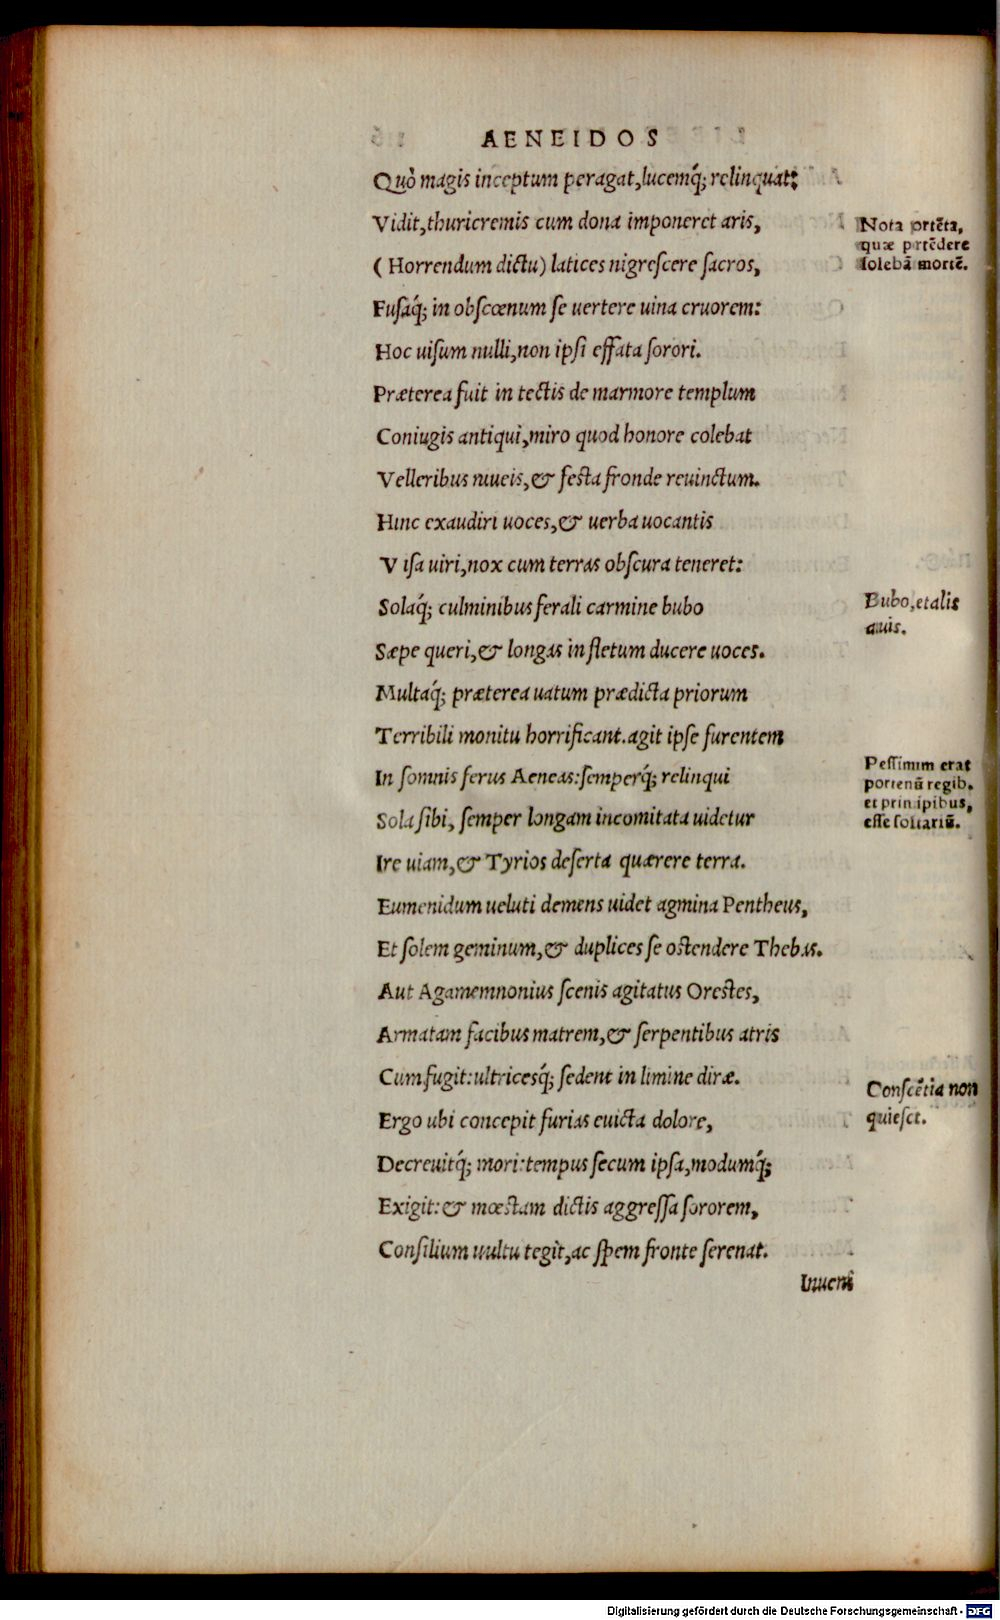 AENEIDOS
Quò magis inceptum peragat, lucemq́; relinquat:
Vidit, thuricremis cum dona imponeret aris,
Nota ortẽta,
quæ prtẽdere
solebã mortẽ.
( Horrendum dictu) latices nigrescere sacros,
Fusaq́; in obscœnum se uertere uina cruorem:
Hoc uisum nulli, non ipsi effata sorori.
Præterea fuit in tectis de marmore templum
Coniugis antiqui, miro quod honore colebat
Velleribus niueis, & festa fronde reuinctum.
Hinc exaudiri uoces, & uerba uocantis
V isa uiri, nox cum terras obscura teneret:
Solaq́; culminibus ferali carmine bubo
Bubo, etalis
auis.
Sæpe queri, & longas in fletum ducere uoces.
Multaq́; præterea uatum prædicta priorum
Terribili monitu horrificant. agit ipse furentem
In somnis ferus Aeneas: semperq́; relinqui
Pessimum erat
portenũ regib.
et prin ipibus,
esse solitariũ.
Sola sibi, semper longam incomitata uidetur
Ire uiam, & Tyrios deserta quærere terra.
Eumenidum ueluti demens uidet agmina Pentheus,
Et solem geminum, & duplices se ostendere Thebas.
Aut Agamemnonius scenis agitatus Orestes,
Armatam facibus matrem, & serpentibus atris
Cum fugit: ultricesq́; sedent in limine diræ.
Conscẽtia non
quiesct.
Ergo ubi concepit furias euicta dolore,
Decreuitq́; mori: tempus secum ipsa, modumq́;
Exigit: & mœstam dictis aggressa sororem,
Consilium uultu tegit, ac spem fronte serenat.
Inueni
Digitalisierung gefördert durch die Deutsche Forschungsgemeinschaft - DFG